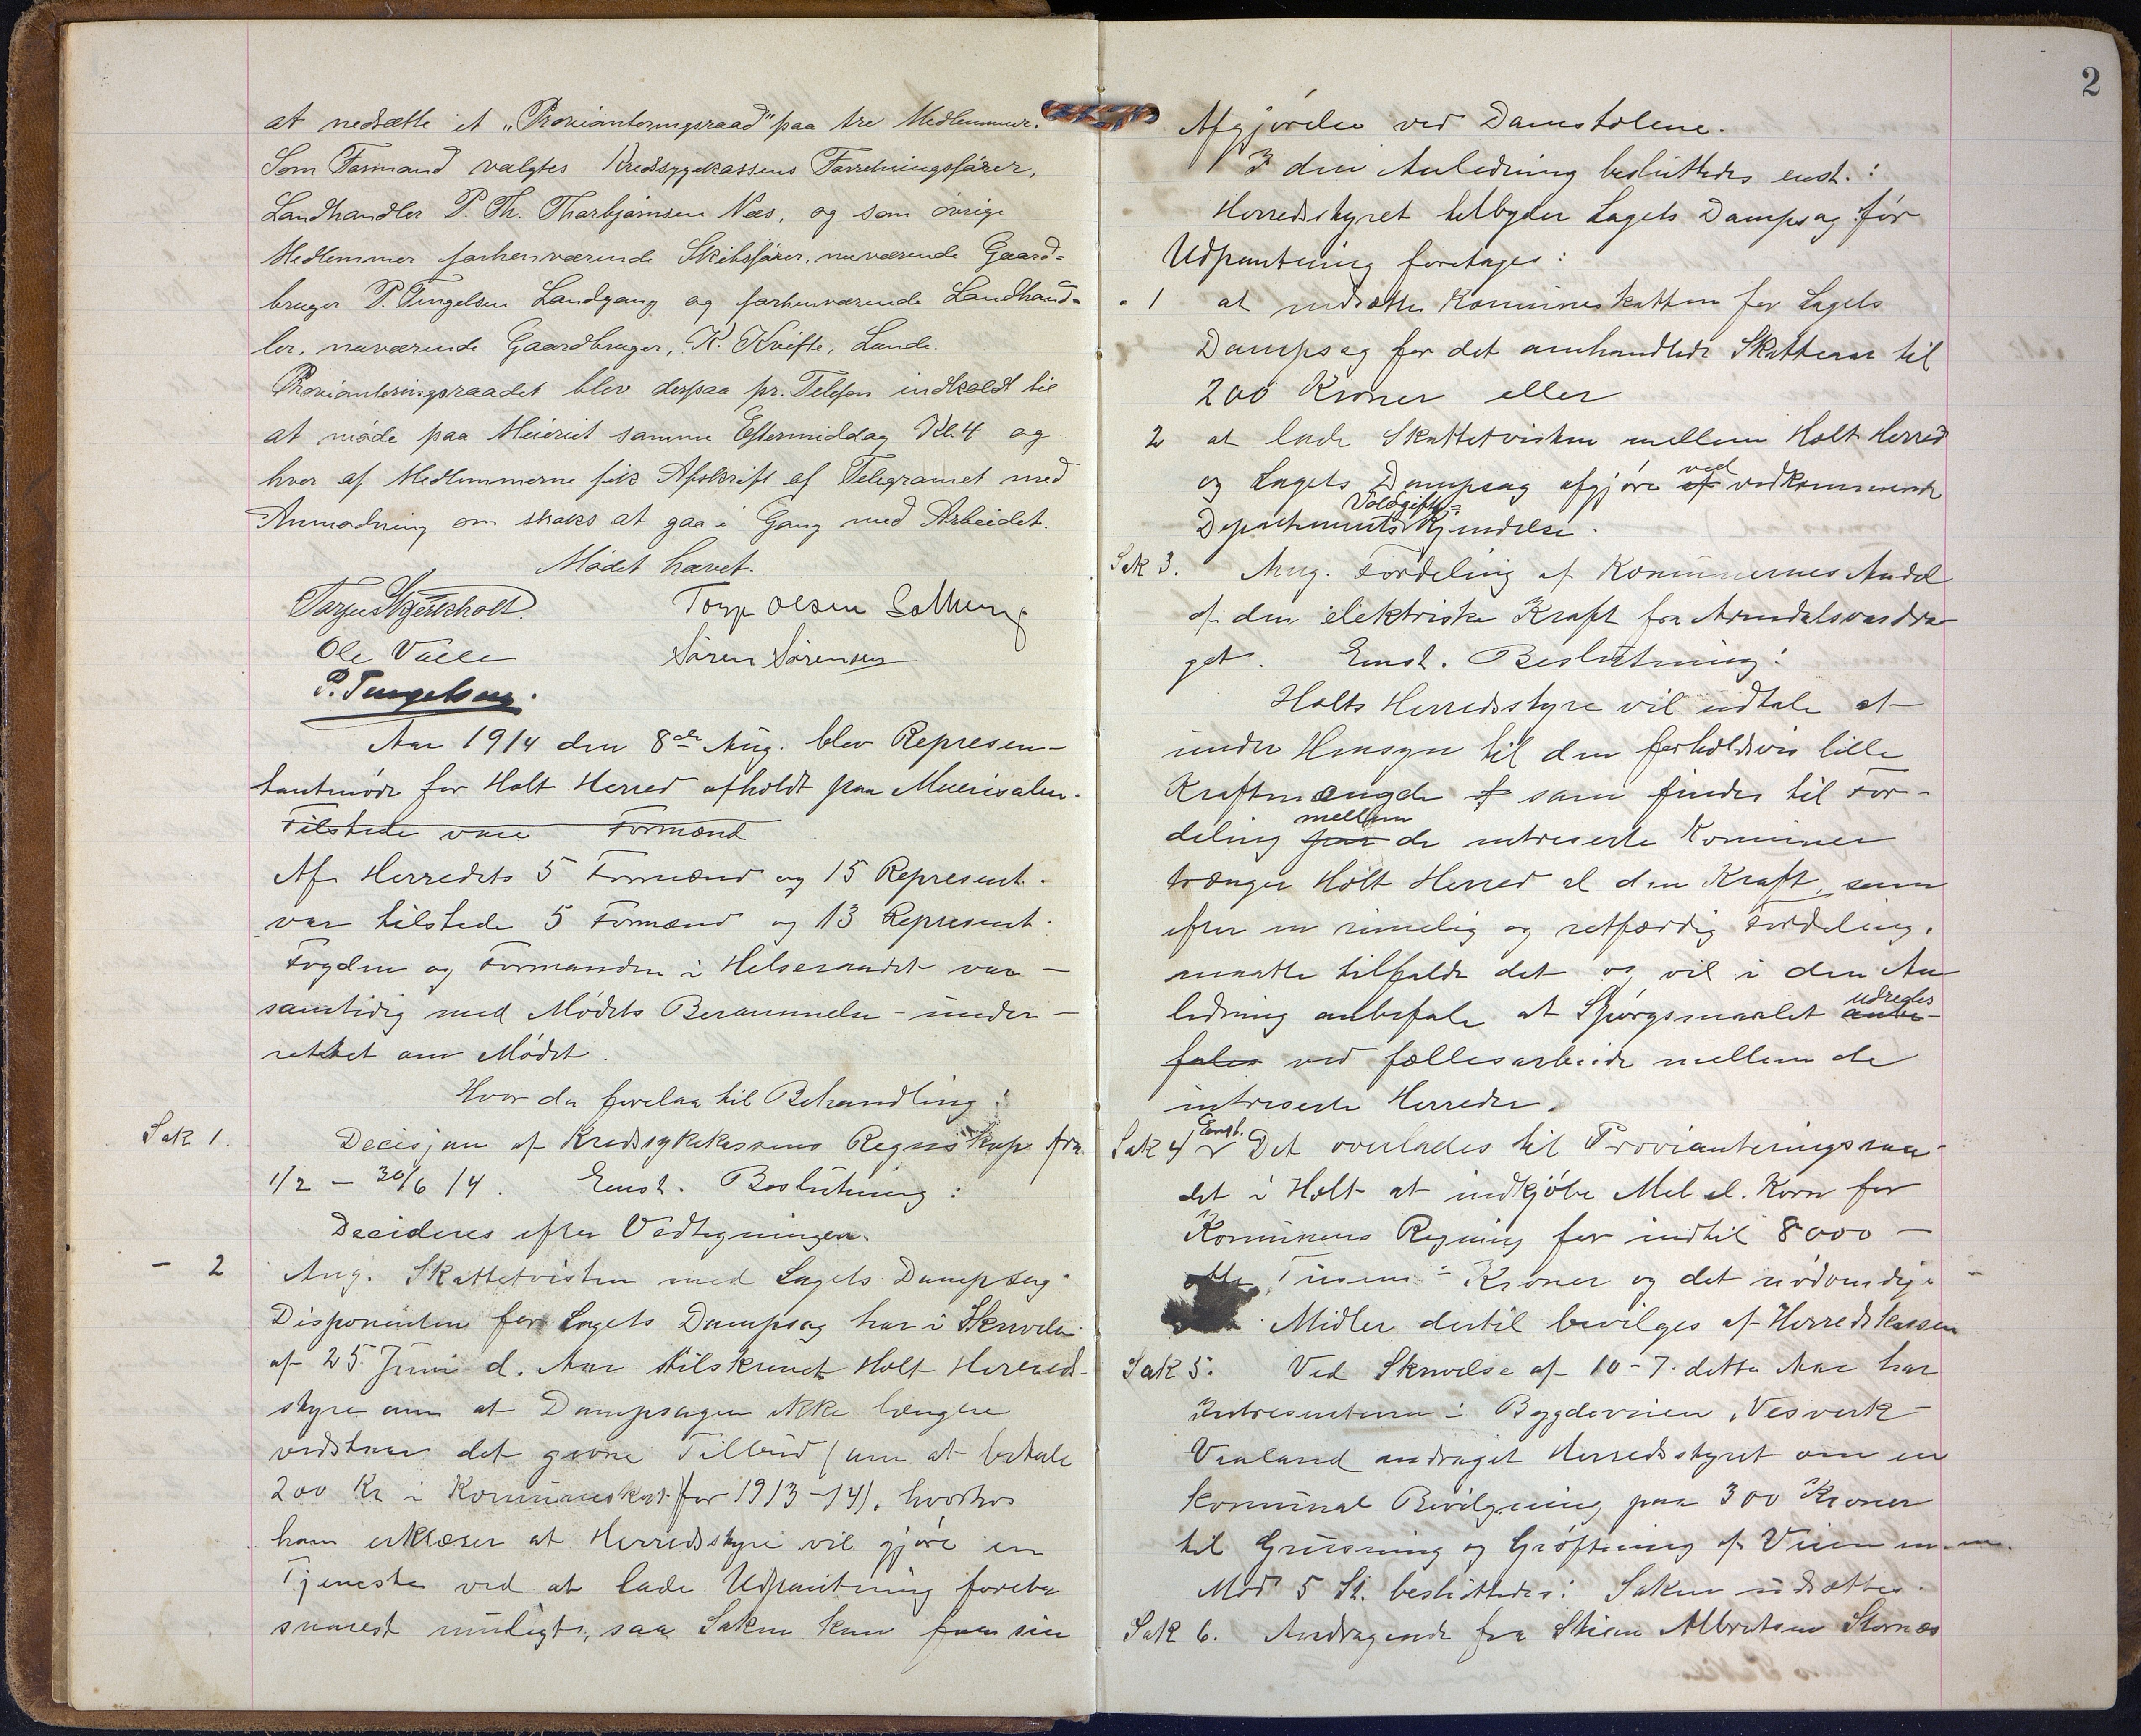 at nedsætte et „Provianteringsraad" paa tre Medlemmer.
Som Formand valgtes Kredssygekassens Forretningsfører,
Landhandler P. Th. Thorbjørnsen Næs, og som øvrige
Medlemmer forhenværende Skibsfører, nuværende Gaard-
bruger P. Tingelsen Landgang og forhenværende Landhand-
ler, nuværende Gaardbruger, K. Kvifte, Lande.
Provianteringsraadet blev derpaa pr. Telefon indkaldt til
at møde paa Meieriet samme Eftermiddag Kl. 4 og
hver af Medlemmerne fik Afskrift af Telegramet med
Anmodning om straks at gaa i Gang med Arbeidet.
Mødet hævet.
Torjus
Torjer Olsen
Ole Valle
Søren Sørensen
P. Tingelsen.
Aar 1914 den 8de Aug. blev Represen-
tantmøde for Holt Herred afholdt paa Meierisalen.
Tilstede var Formænd
Af Herredets 5 Formænd og 15 Represent.
var tilstede 5 Formænd og 13 Represent.
Fogden og Formanden i Helseraadet var -
samtidig med Mødets Berammelse - under -
rettet om Mødet.
Hvor da forelaa til Behandling:
Sak 1.
Decisjon af Kredssykekassens Regnskap fra
1/2 - 30/6 14. Enst. Beslutning:
Decideres efter Vedtegningen.
- 2
Ang. Skattetvisten med Lagets Dampsag.
Disponenten for Lagets Dampsag har i Skrivelse
af 25 Juni d. Aar tilskrevet Holt Herreds-
styre om at Dampsagen ikke længere
vedstaar det givne Tilbud (om at betale
200 Kr i Kommuneskat for 1913-14), hvorhos
han erklærer at Herredsstyre vil gjøre en
Tjeneste ved at lade Udpantning foreta
snarest muligt, saa Saken kan faa sin
2
Afgjørelse ved Domstolene.
I den Anledning besluttedes enst.:
Herredsstyret tilbyder Lagets Dampsag før
Udpantning foretages:
1 at nedsætte Kommuneskatten for Lagets
Dampsag for det omhandlede Skatteaar til
200 Kroner eller
2 at lade Skattetvisten mellem Holt Herred
og Lagets Dampsag afgjøre af ved vedkommende
Departements Voldgifts=Kjendelse.
Sak 3. Ang. Fordeling af Kommunernes Andel
af den elektriske Kraft fra Arendalsvasdra
get. Enst. Beslutning:
Holts Herredsstyre vil udtale at
under Hensyn til den forholdsvis lille
Kraftmængde som findes til For-
deling mellem de intreserte Kommuner
trænger Holt Herred al den Kraft, som
efter en rimelig og retfærdig Fordeling,
maatte tilfalde det og vil i den An
ledning anbefale at Spørgsmaalet anbe- udredes
fales ved fællesarbeide mellem de
intreserte Herreder.
Sak 4 Enst. Det overlades til Provianteringsraa-
det i Holt at indkjøbe Mel el. Korn for
Kommunens Regning for indtil 8000 -
otte Tusend - Kroner og det nødvendige
Midler dertil bevilges af Herredskassen
Sak 5. Ved Skrivelse af 10-7. dette Aar har
Intresentene i Bygdeveien, Vesverk-
Vaaland andraget Herredsstyret om en
kommunal Bevilgning paa 300 Kroner
til Grusning og Grøftning af Veien m.m.
Mod 5 St. besluttedes: Saken udsættes.
Sak 6. Andragende fra Albretsen